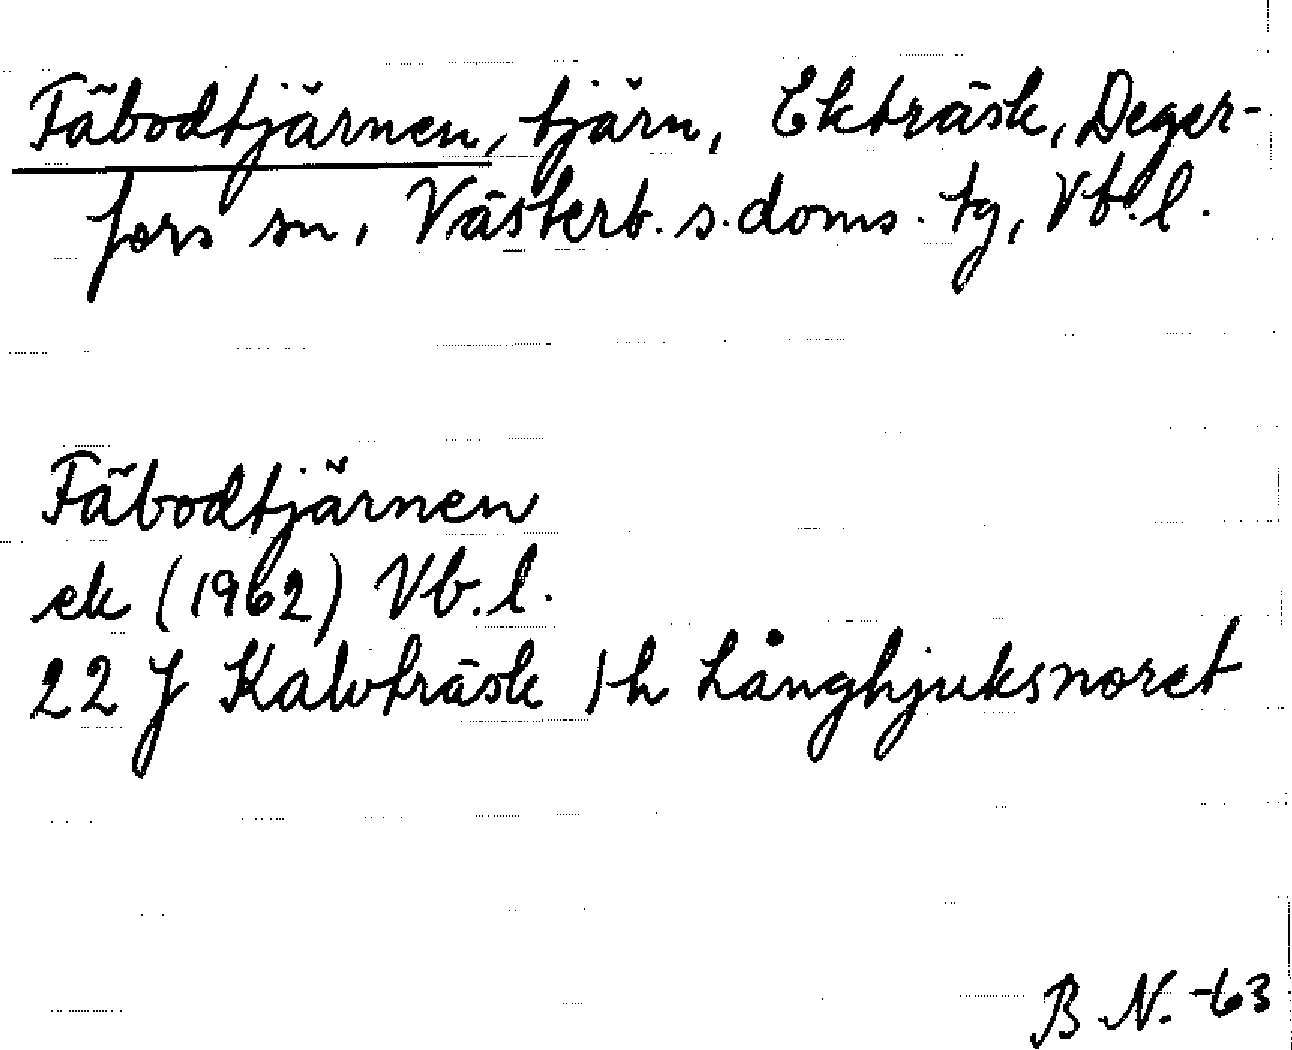 Fäbodtjärnen, tjärn, Ekträsk, Deger-
fors sn, Västerb. s. doms. tg, Vb. l.
Fäbodtjärnen
ek (1962) Vb. l.
22 J Kalvträsk 1-h Långhjuksnoret
B N. -63